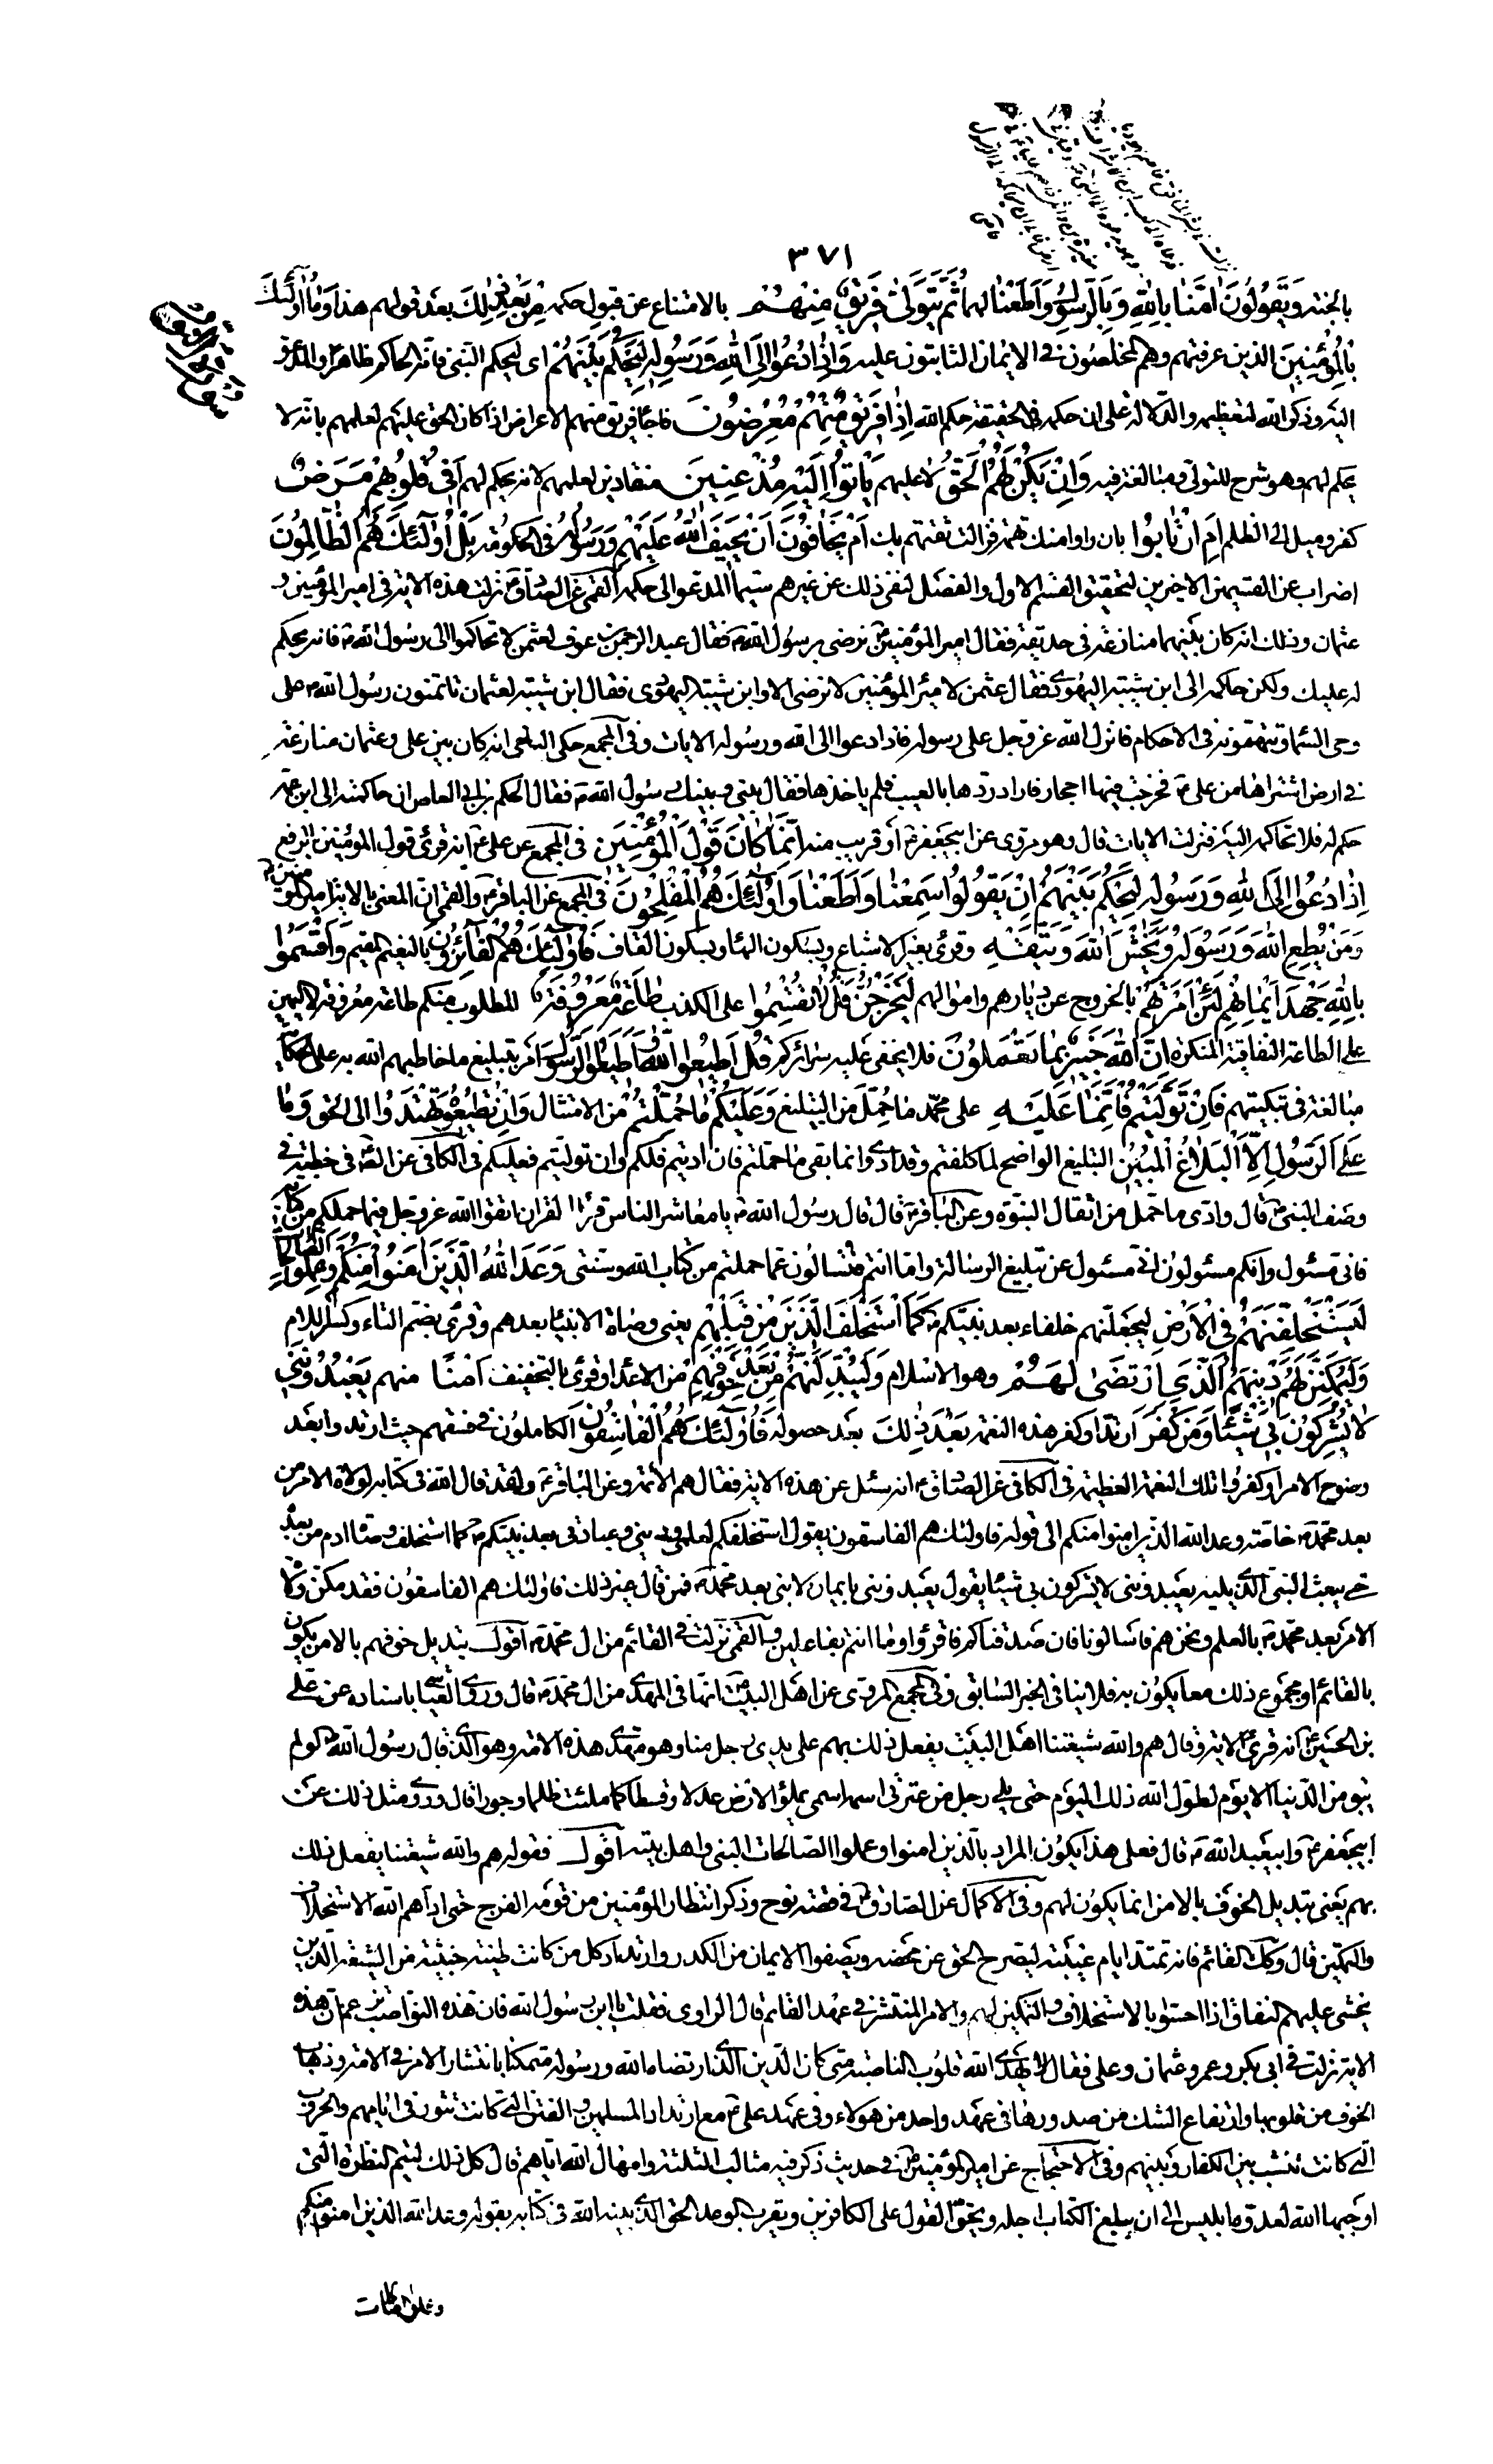 ٣٧١
بالجنة وَيَقُولُونَ اٰمَنّٰا بِاللّٰهِ وَبِالرَّسُولِ وَاَطَعْنٰا لهما ثُمَّ يَتَوَلّىٰ فَرِيقٌ مِنْهُمْ بالامتناع عن قبول حكمه مِنْ بَعْدِ ذٰلِكَ بعد قولهم هذا وَمٰا اُولٰئِكَ
بِالْمُؤْمِنِينَ الذين عرفتهم وهم المخلصون في الايمان الثابتون عليه وَاِذٰا دُعُوا اِلَى اللّٰهِ وَرَسُولِهِ لِيَحْكُمَ بَيْنَهُمْ اى ليحكم النبي فانه الحاكم ظاهرا والمدعو
اليه وذكر الله لتعظيمه والدلالة على ان حكمه في الحقيقة حكم الله اِذٰا فَرِيقٌ مِنْهُمْ مُعْرِضُونَ فاجأ فريق منهم الاعراض اذا كان الحق عليهم لعلمهم بانه لا
يحكم لهم وهو شرح للتولى ومبالغة فيه وَاِنْ يَكُنْ لَهُمُ الْحَقُّ لا عليهم يَأْتُوا اِلَيْهِ مُذْعِنِينَ منقادين لعلمهم لانه يحكم لهم اَفِي قُلُوبِهِمْ مَرَضٌ
كفر وميل الى الظلم اَمِ ارْتٰابُوا بان راوا منك تهمة فزالت ثقتهم بك اَمْ يَخٰافُونَ اَنْ يَحِيفَ اللّٰهُ عَلَيْهِمْ وَرَسُولُهُ في الحكومة بَلْ اُولٰئِكَ هُمُ الظّٰالِمُونَ
اضراب عن القسمين الاخيرين لتحقيق القسم الاول والفصل لنفى ذلك عن غيرهم سيما المدعو الى حكمه القمى عن الصادق ع نزلت هذه الاية في امير المؤمنين و
عثمان وذلك انه كان بينهما منازعة في حديقة فقال امير المؤمنين ع نرضى برسول الله ص فقال عبد الرحمن بن عوف لعثمن لا تحاكمه الى رسول الله ص فانه يحكم
له عليك ولكن حاكمه الى ابن شيبة اليهودى فقال عثمن لامير المؤمنين لا نرضى الا وابن شيبة اليهودى فقال ابن شيبة لعثمان تاتمنون رسول الله ص على
وحى السماء وتتهمونه في الاحكام فانزل الله عز وجل على رسوله فاذا دعوا الى الله ورسوله الايات وفي المجمع حكى البلخى انه كان بين على وعثمان منازعة
في ارض اشتراها من على ع فخرجت فيها احجار فاراد ردها بالعيب فلم ياخذها فقال بينى وبينك رسول الله ص فقال الحكم بن ابى العاص ان حاكمته الى ابن عمه
حكم له فلا تحاكمه اليه فنزلت الايات قال وهو مروى عن ابيجعفر ع او قريب منه اِنَّمٰا كٰانَ قَوْلَ الْمُؤْمِنِينَ في المجمع عن على ع انه قرئ قول المؤمنين بالرفع
اِذٰا دُعُوا اِلَى اللّٰهِ وَرَسُولِهِ لِيَحْكُمَ بَيْنَهُمْ اَنْ يَقُولُوا سَمِعْنٰا وَاَطَعْنٰا وَاُولٰئِكَ هُمُ الْمُفْلِحُونَ في المجمع عن الباقر ع والقمى ان المعنى بالاية امير المؤمنين ع
وَمَنْ يُطِعِ اللّٰهَ وَرَسُولَهُ وَيَخْشَ اللّٰهَ وَيَتَّقْهِ وقرئ بغير الاشباع وبسكون الهاء وبسكون القاف فَاُولٰئِكَ هُمُ الْفٰائِزُونَ بالنعيم المقيم وَاَقْسَمُوا
بِاللّٰهِ جَهْدَ اَيْمٰانِهِمْ لَئِنْ اَمَرْتَهُمْ بالخروج عن ديارهم واموالهم لَيَخْرُجُنَّ قُلْ لٰا تُقْسِمُوا على الكذب طٰاعَةٌ مَعْرُوفَةٌ المطلوب منكم طاعة معروفة لا اليمين
على الطاعة النفاقية المنكرة اِنَّ اللّٰهَ خَبِيرٌ بِمٰا تَعْمَلُونَ فلا يخفى عليه سرائركم قُلْ اَطِيعُوا اللّٰهَ وَاَطِيعُوا الرَّسُولَ امر بتبليغ ما خاطبهم الله به على الحكاية
مبالغة في تبكيتهم فَاِنْ تَوَلَّيْتُمْ فَاِنَّمٰا عَلَيْهِ على محمد مٰا حُمِّلَ من التبليغ وَعَلَيْكُمْ مٰا حُمِّلْتُمْ من الامتثال وَاِنْ تُطِيعُوهُ تَهْتَدُوا الى الحق وَمٰا
عَلَى الرَّسُولِ اِلَّا الْبَلٰاغُ الْمُبِينُ التبليغ الواضح لما كلفتم وقد ادى وانما بقى ما حملتم فان اديتم فلكم وان توليتم فعليكم في الكافى عن الصادق ع في خطبة في
وصف النبي ص قال وادى ما حمل من اثقال النبوة وعن الباقر ع قال قال رسول الله ص يا معاشر الناس قراء القران اتقوا الله عز وجل فيما حملكم من كتابه
فانى مسئول وانكم مسئولون انى مسئول عن تبليغ الرسالة واما انتم فتسالون عما حملتم من كتاب الله وسنتى وَعَدَ اللّٰهُ الَّذِينَ اٰمَنُوا مِنْكُمْ وَعَمِلُوا الصّٰالِحٰاتِ
لَيَسْتَخْلِفَنَّهُمْ فِي الْاَرْضِ ليجعلنهم خلفاء بعد نبيكم ص كَمَا اسْتَخْلَفَ الَّذِينَ مِنْ قَبْلِهِمْ يعنى وصاة الانبياء بعدهم وقرئ بضم التاء وكسر اللام
وَلَيُمَكِّنَنَّ لَهُمْ دِينَهُمُ الَّذِي ارْتَضىٰ لَهُمْ وهو الاسلام وَلَيُبَدِّلَنَّهُمْ مِنْ بَعْدِ خَوْفِهِمْ من الاعداء وقرئ بالتخفيف اَمْنًا منهم يَعْبُدُونَنِي
لٰا يُشْرِكُونَ بِي شَيْئًا وَمَنْ كَفَرَ ارتد او كفر هذه النعمة بَعْدَ ذٰلِكَ بعد حصوله فَاُولٰئِكَ هُمُ الْفٰاسِقُونَ الكاملون في فسقهم حيث ارتدوا بعد
وضوح الامر او كفروا تلك النعمة العظيمة في الكافى عن الصادق ع انه سئل عن هذه الاية فقال هم الائمة وعن الباقر ع ولقد قال الله في كتابه لولاة الامر من
بعد محمد ص خاصة وعد الله الذين امنوا منكم الى قوله فاولئك هم الفاسقون يقول استخلفكم لعلمى ودينى وعبادتى بعد نبيكم ص كما استخلف وصاة ادم من بعده
حتى يبعث النبى الذى يليه يعبدوننى لا يشركون بى شيئا يقول يعبدوننى بايمان لا نبى بعد محمد ص فمن قال غير ذلك فاولئك هم الفاسقون فقد مكن ولاة
الامر بعد محمد ص بالعلم ونحن هم فاسالونا فان صدقناكم فاقروا وما انتم بفاعلين والقمى نزلت في القائم من ال محمد ص اقول تبديل خوفهم بالامن يكون
بالقائم او مجموع ذلك معا يكون به فلا ينافى الخبر السابق وفي المجمع المروى عن اهل البيت ع انها في المهدى من ال محمد ص قال وروى العياشى باسناده عن على
بن الحسين ع انه قرئ الاية وقال هم والله شيعتنا اهل البيت يفعل ذلك بهم على يدى رجل منا وهو مهدى هذه الامة وهو الذى قال رسول الله ص لو لم
يبق من الدنيا الا يوم لطول الله ذلك اليوم حتى يلى رجل من عترتى اسمه اسمى يملؤ الارض عدلا وقسطا كما ملئت ظلما وجورا قال وروى مثل ذلك عن
ابيجعفر ع وابيعبد الله ع قال فعلى هذا يكون المراد بالذين امنوا وعملوا الصالحات النبي واهل بيته اقول فقوله هم والله شيعتنا يفعل ذلك
بهم يعنى تبديل الخوف بالامن انما يكون لهم وفي الاكمال عن الصادق ع في قصة نوح وذكر انتظار المؤمنين من قومه الفرج حتى اراهم الله الاستخلاف
والتمكين قال وكذلك القائم فانه تمتد ايام غيبته ليصرح الحق عن محضه ويصفوا الايمان من الكدر وارتداد كل من كانت طينته خبيثة من الشيعة الذين
يخشى عليهم النفاق اذا احسوا بالاستخلاف والتمكين لهم والامر المنتشر في عهد القائم قال الراوى فقلت يا ابن رسول الله فان هذه النواصب تزعم ان هذه
الاية نزلت في ابى بكر وعمر وعثمان وعلى فقال لا يهدى الله قلوب الناصبة متى كان الدين الذى ارتضاه الله ورسوله متمكنا بانتشار الامن في الامة وذهاب
الخوف من قلوبها وارتفاع الشك من صدورها في عهد واحد من هولاء وفي عهد على ع مع ارتداد المسلمين والفتن التى كانت تثور في ايامهم والحروب
التى كانت تنشب بين الكفار وبينهم وفي الاحتجاج عن امير المؤمنين ع في حديث ذكر فيه مثالب الثلثة وامهال الله اياهم قال كل ذلك لتتم النظرة التى
اوجبها الله لعدوه ابليس الى ان يبلغ الكتاب اجله ويحق القول على الكافرين ويقرب الوعد الحق الذى بينه الله في كتابه بقوله وعد الله الذين امنوا منكم
وعملوا الصالحات